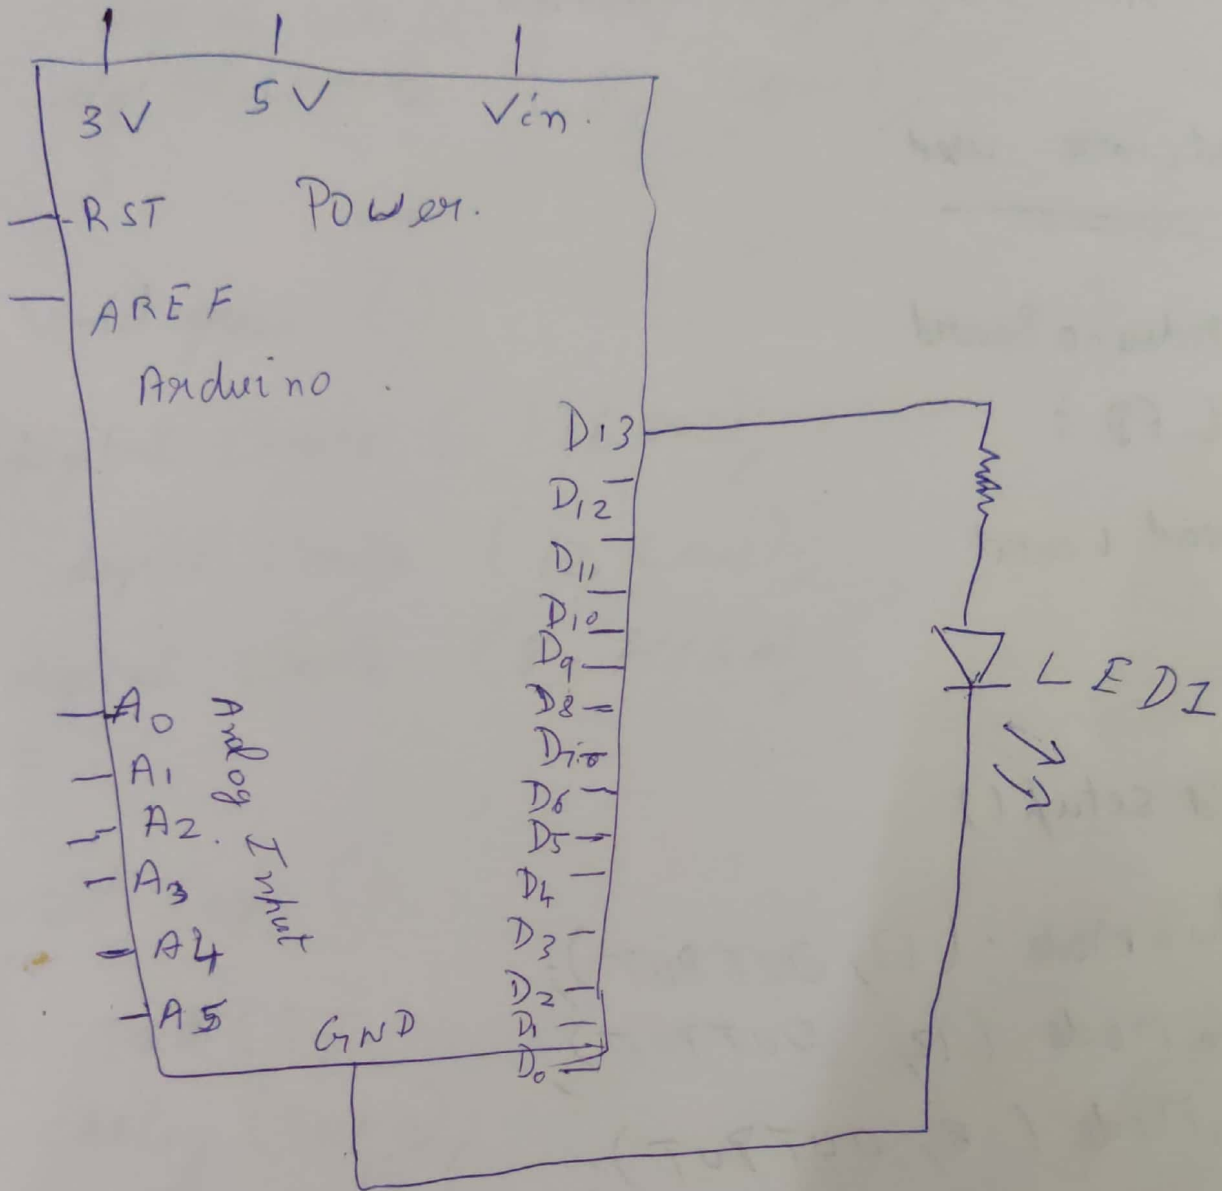 3V 5V Vin.
RST Power.
AREF
Arduino
D13
D12
D11
D10
D9
D8
D6
D5
D4
D3
D2
D1
D0
LED1
A0
A1
A2.
A3
A4
A5
Analog Input
GND